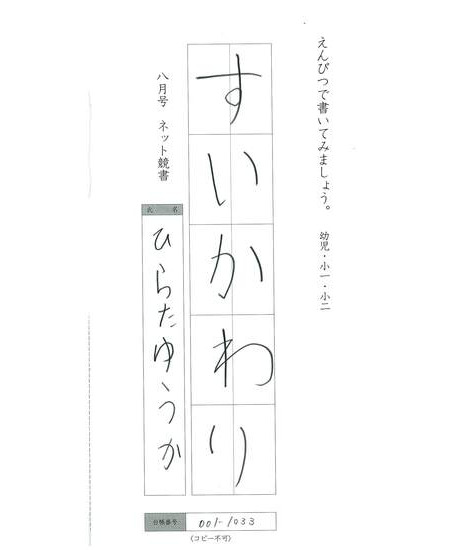 えんぴつで書いてみましょう。 幼児・小一・小二
すいかわり
八月号 ネット競書
氏名
ひらたゆうか
会員番号 001-1033
(コピー不可)